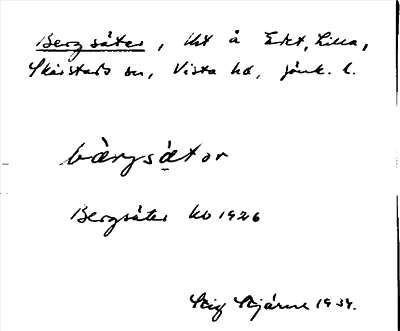 Bergsäter, tht å Ekt, Lilla,
Skärstads sn, Vista hd, Jönk. l.
bàrgsätor
Bergsäter kb 1926
Stig Stjärne 1934.